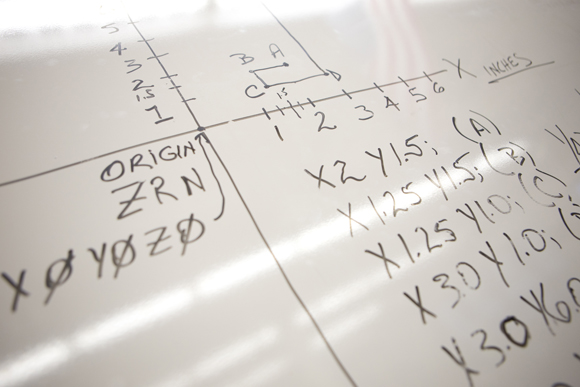 5
4
3
2
1.5
1
B A
C
1.5
1 2 3 4 5 6 X INCHES
ORIGIN
ZRN
XØ YØ ZØ
X2 Y1.5; (A)
X1.25 Y1.5; (B)
X1.25 Y1.0; (C)
X3.0 Y1.0;
X3.0 Y6.0